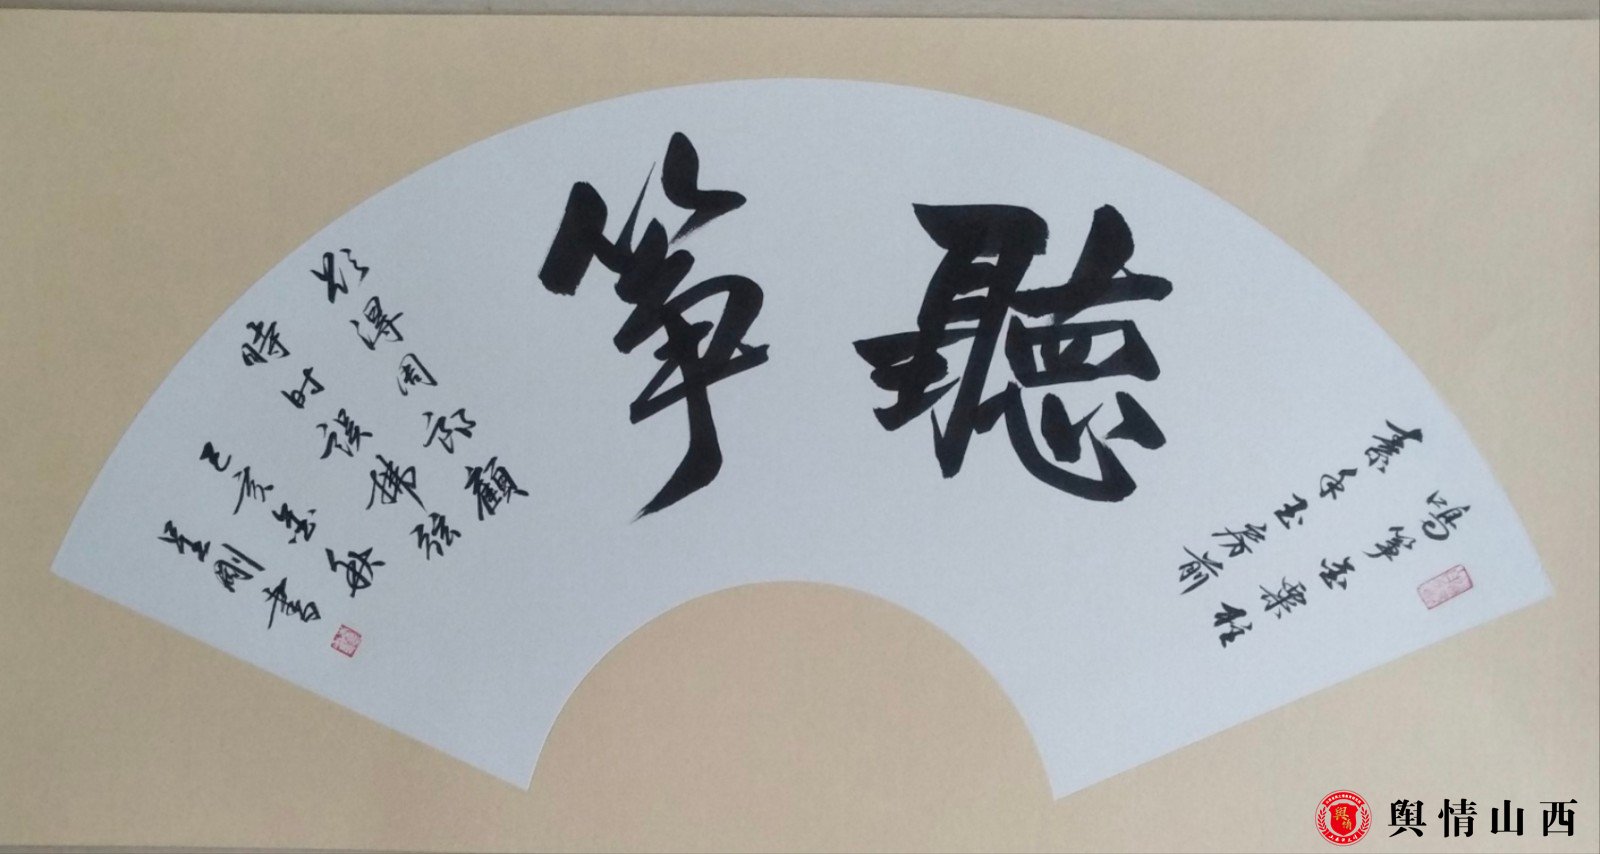 鳴箏金粟柱
素手玉房前
聽箏
欲得周郎顧
時时誤拂弦
己亥金秋
剛書
舆情山西